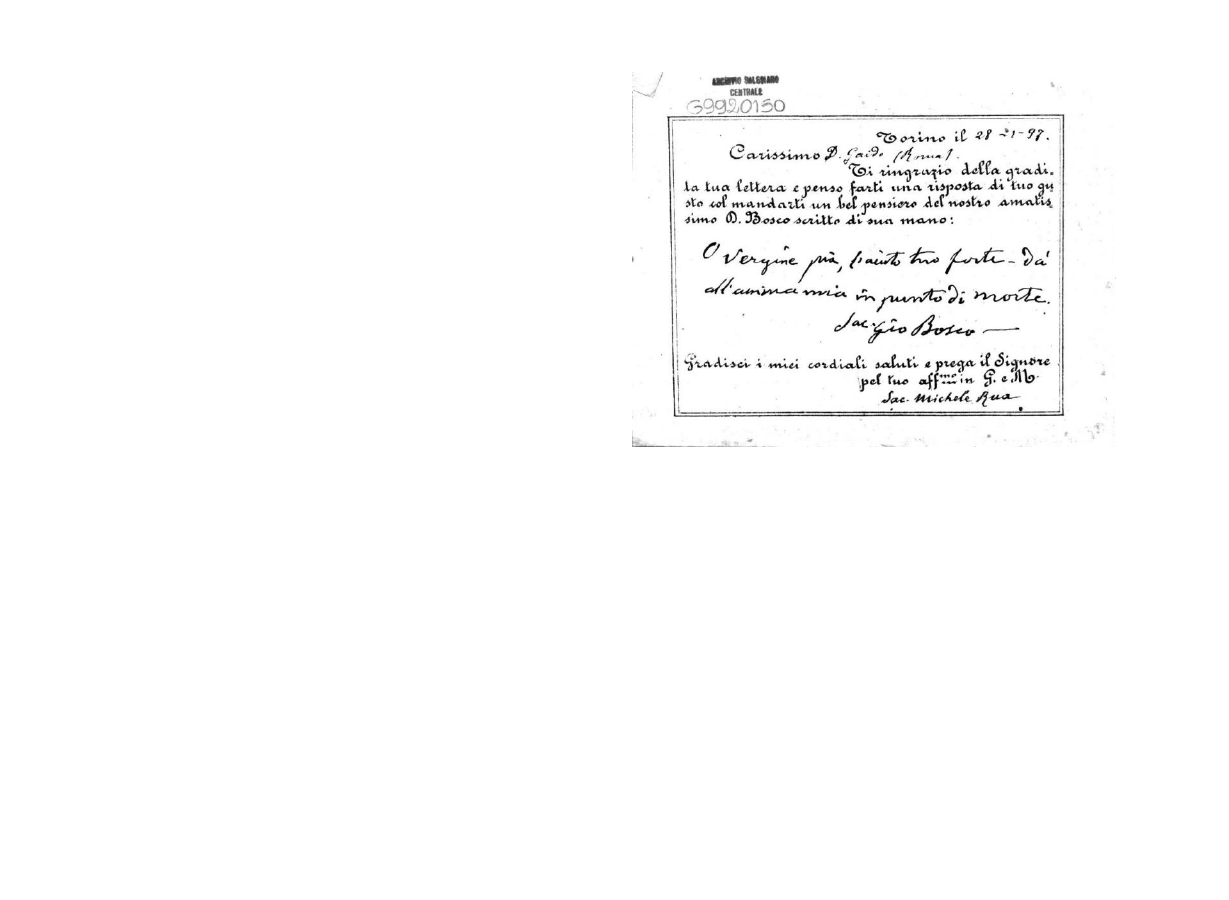 ARCHIVIO SALESIANO
CENTRALE
G9920150
Torino il 28 - 97.
Carissimo D. Gaido (Roma).
Ti ringrazio della gradi-
ta tua lettera e penso farti una risposta di tuo gu
sto col mandarti un bel pensiero del nostro amatis
simo D. Bosco scritto di sua mano:
O Vergine pia, l'aiuto tuo forte - Dà
all'anima mia in punto di morte.
Sac. Gio Bosco
Gradisci i miei cordiali saluti e prega il Signore
pel tuo aff.mo in G. e M.
Sac. Michele Rua